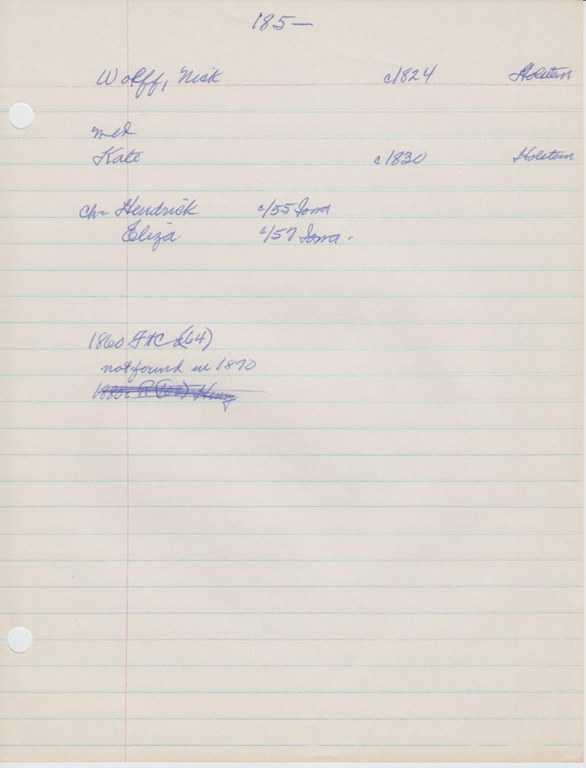 185-
Wolff, Nick c1824 Holstein
med
Kate c1830 Holstein
ch- Hendrick c/55 Iowa
Eliza c/57 Iowa.
1860 (64)
not found in 1870
Henry